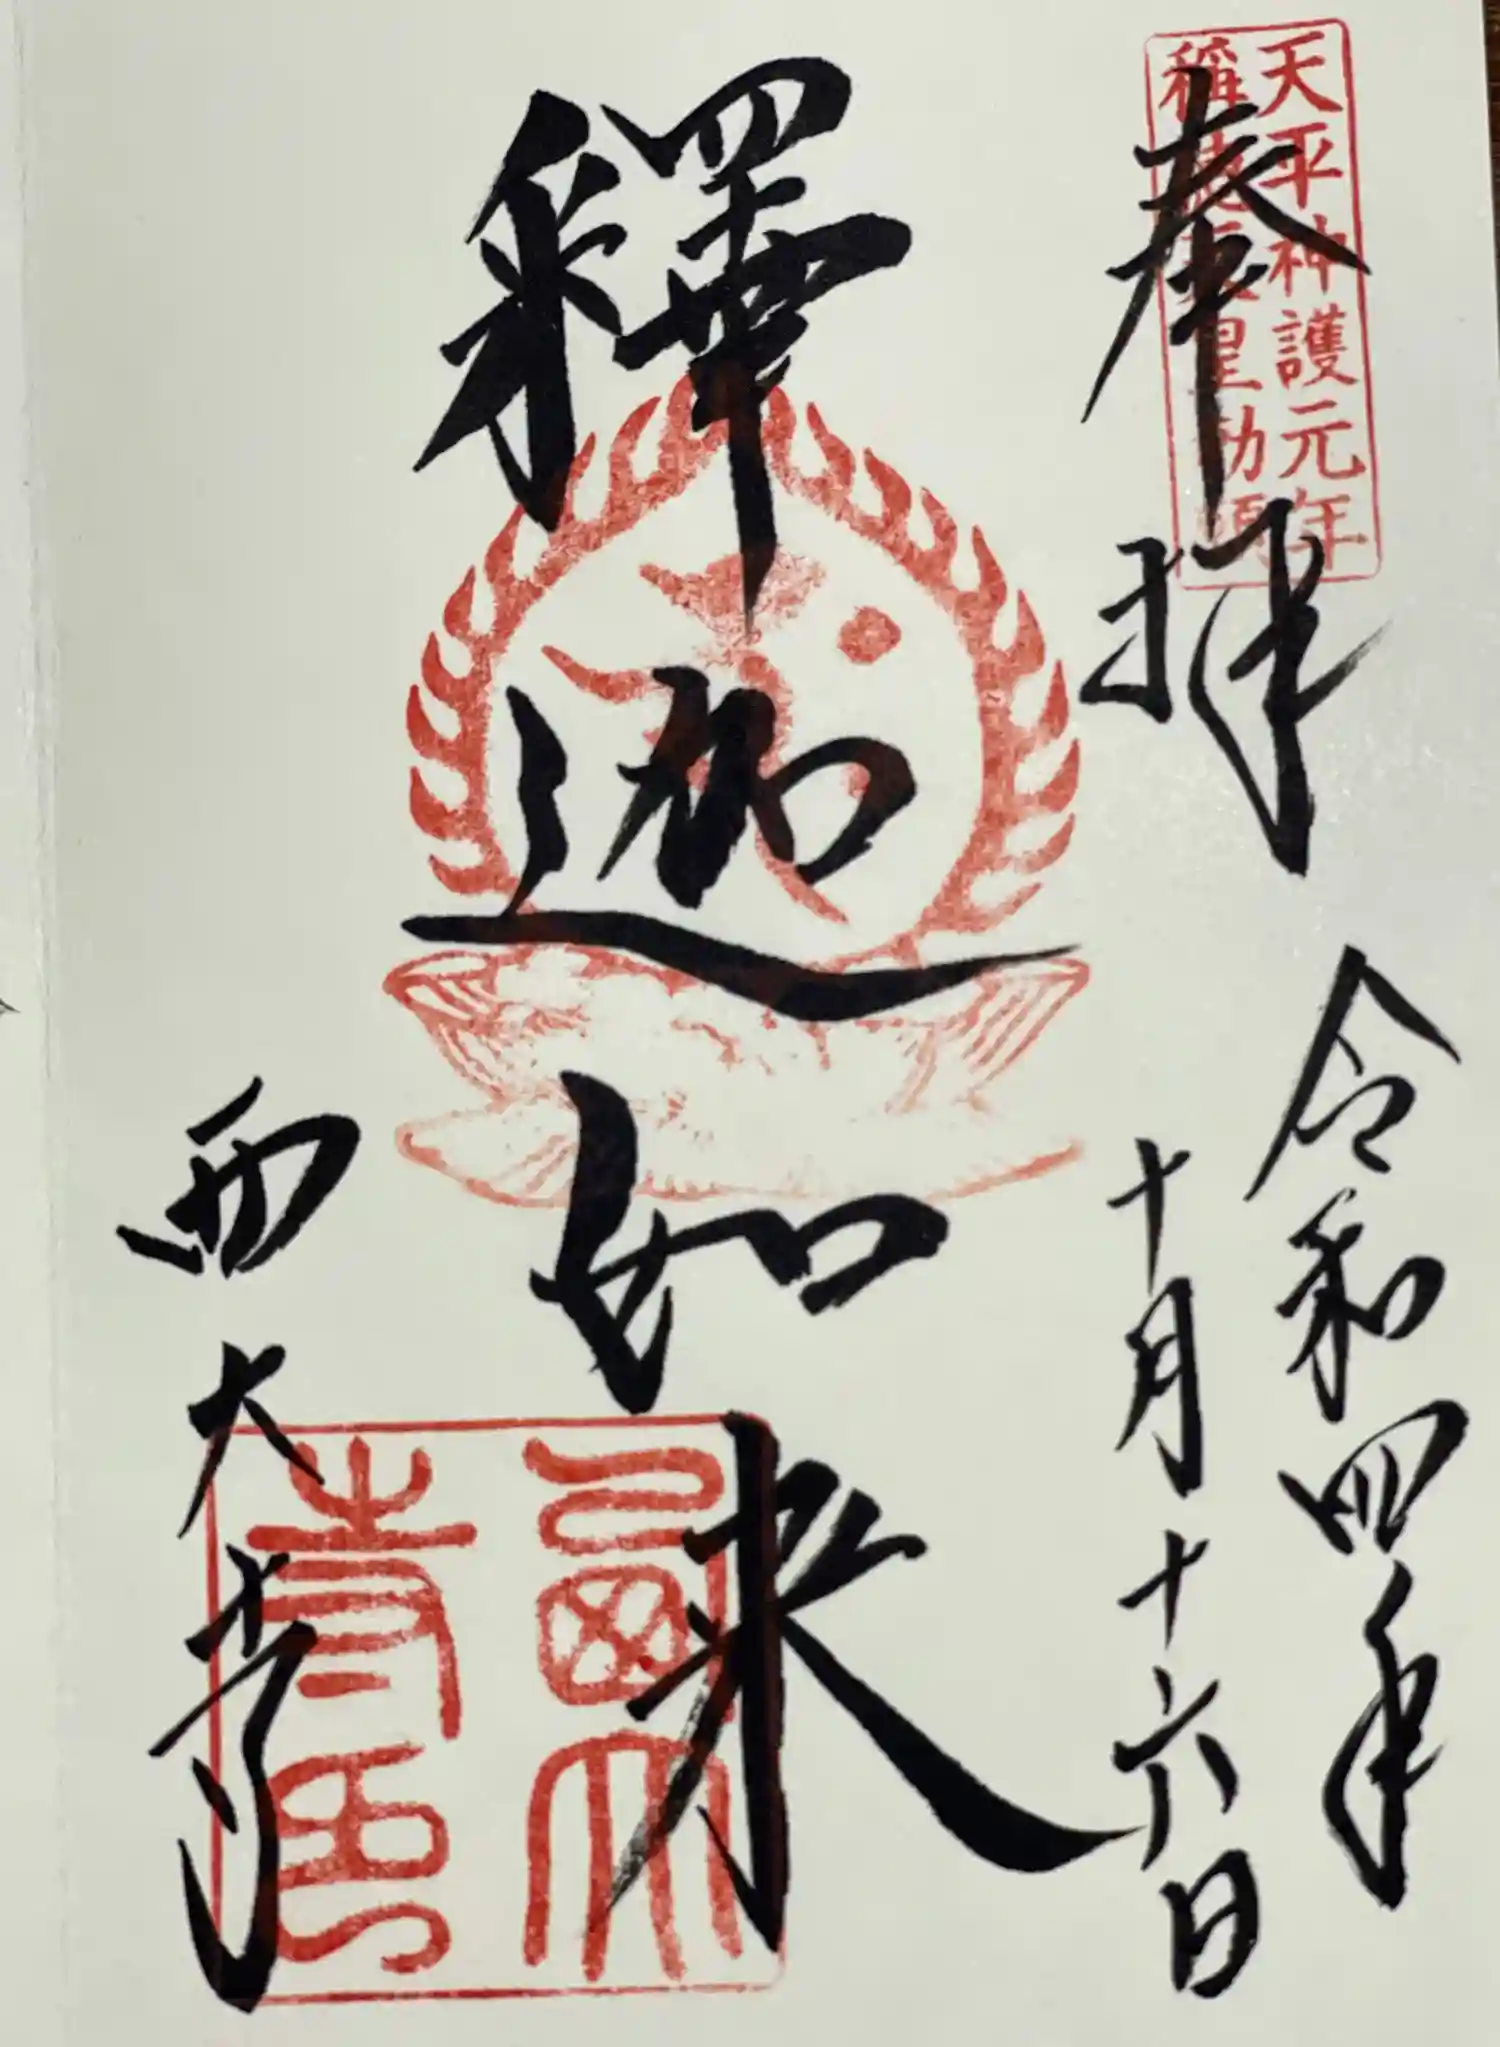 天平神護元年
稱徳天皇勅願
奉拝
令和四年
十月十六日
釋迦如来
西大寺
西大
寺印